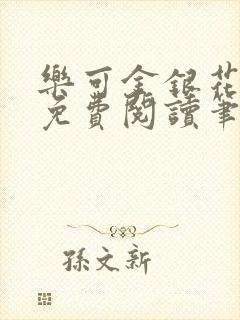 樂可金銀花
免費閱讀筆
孫文新